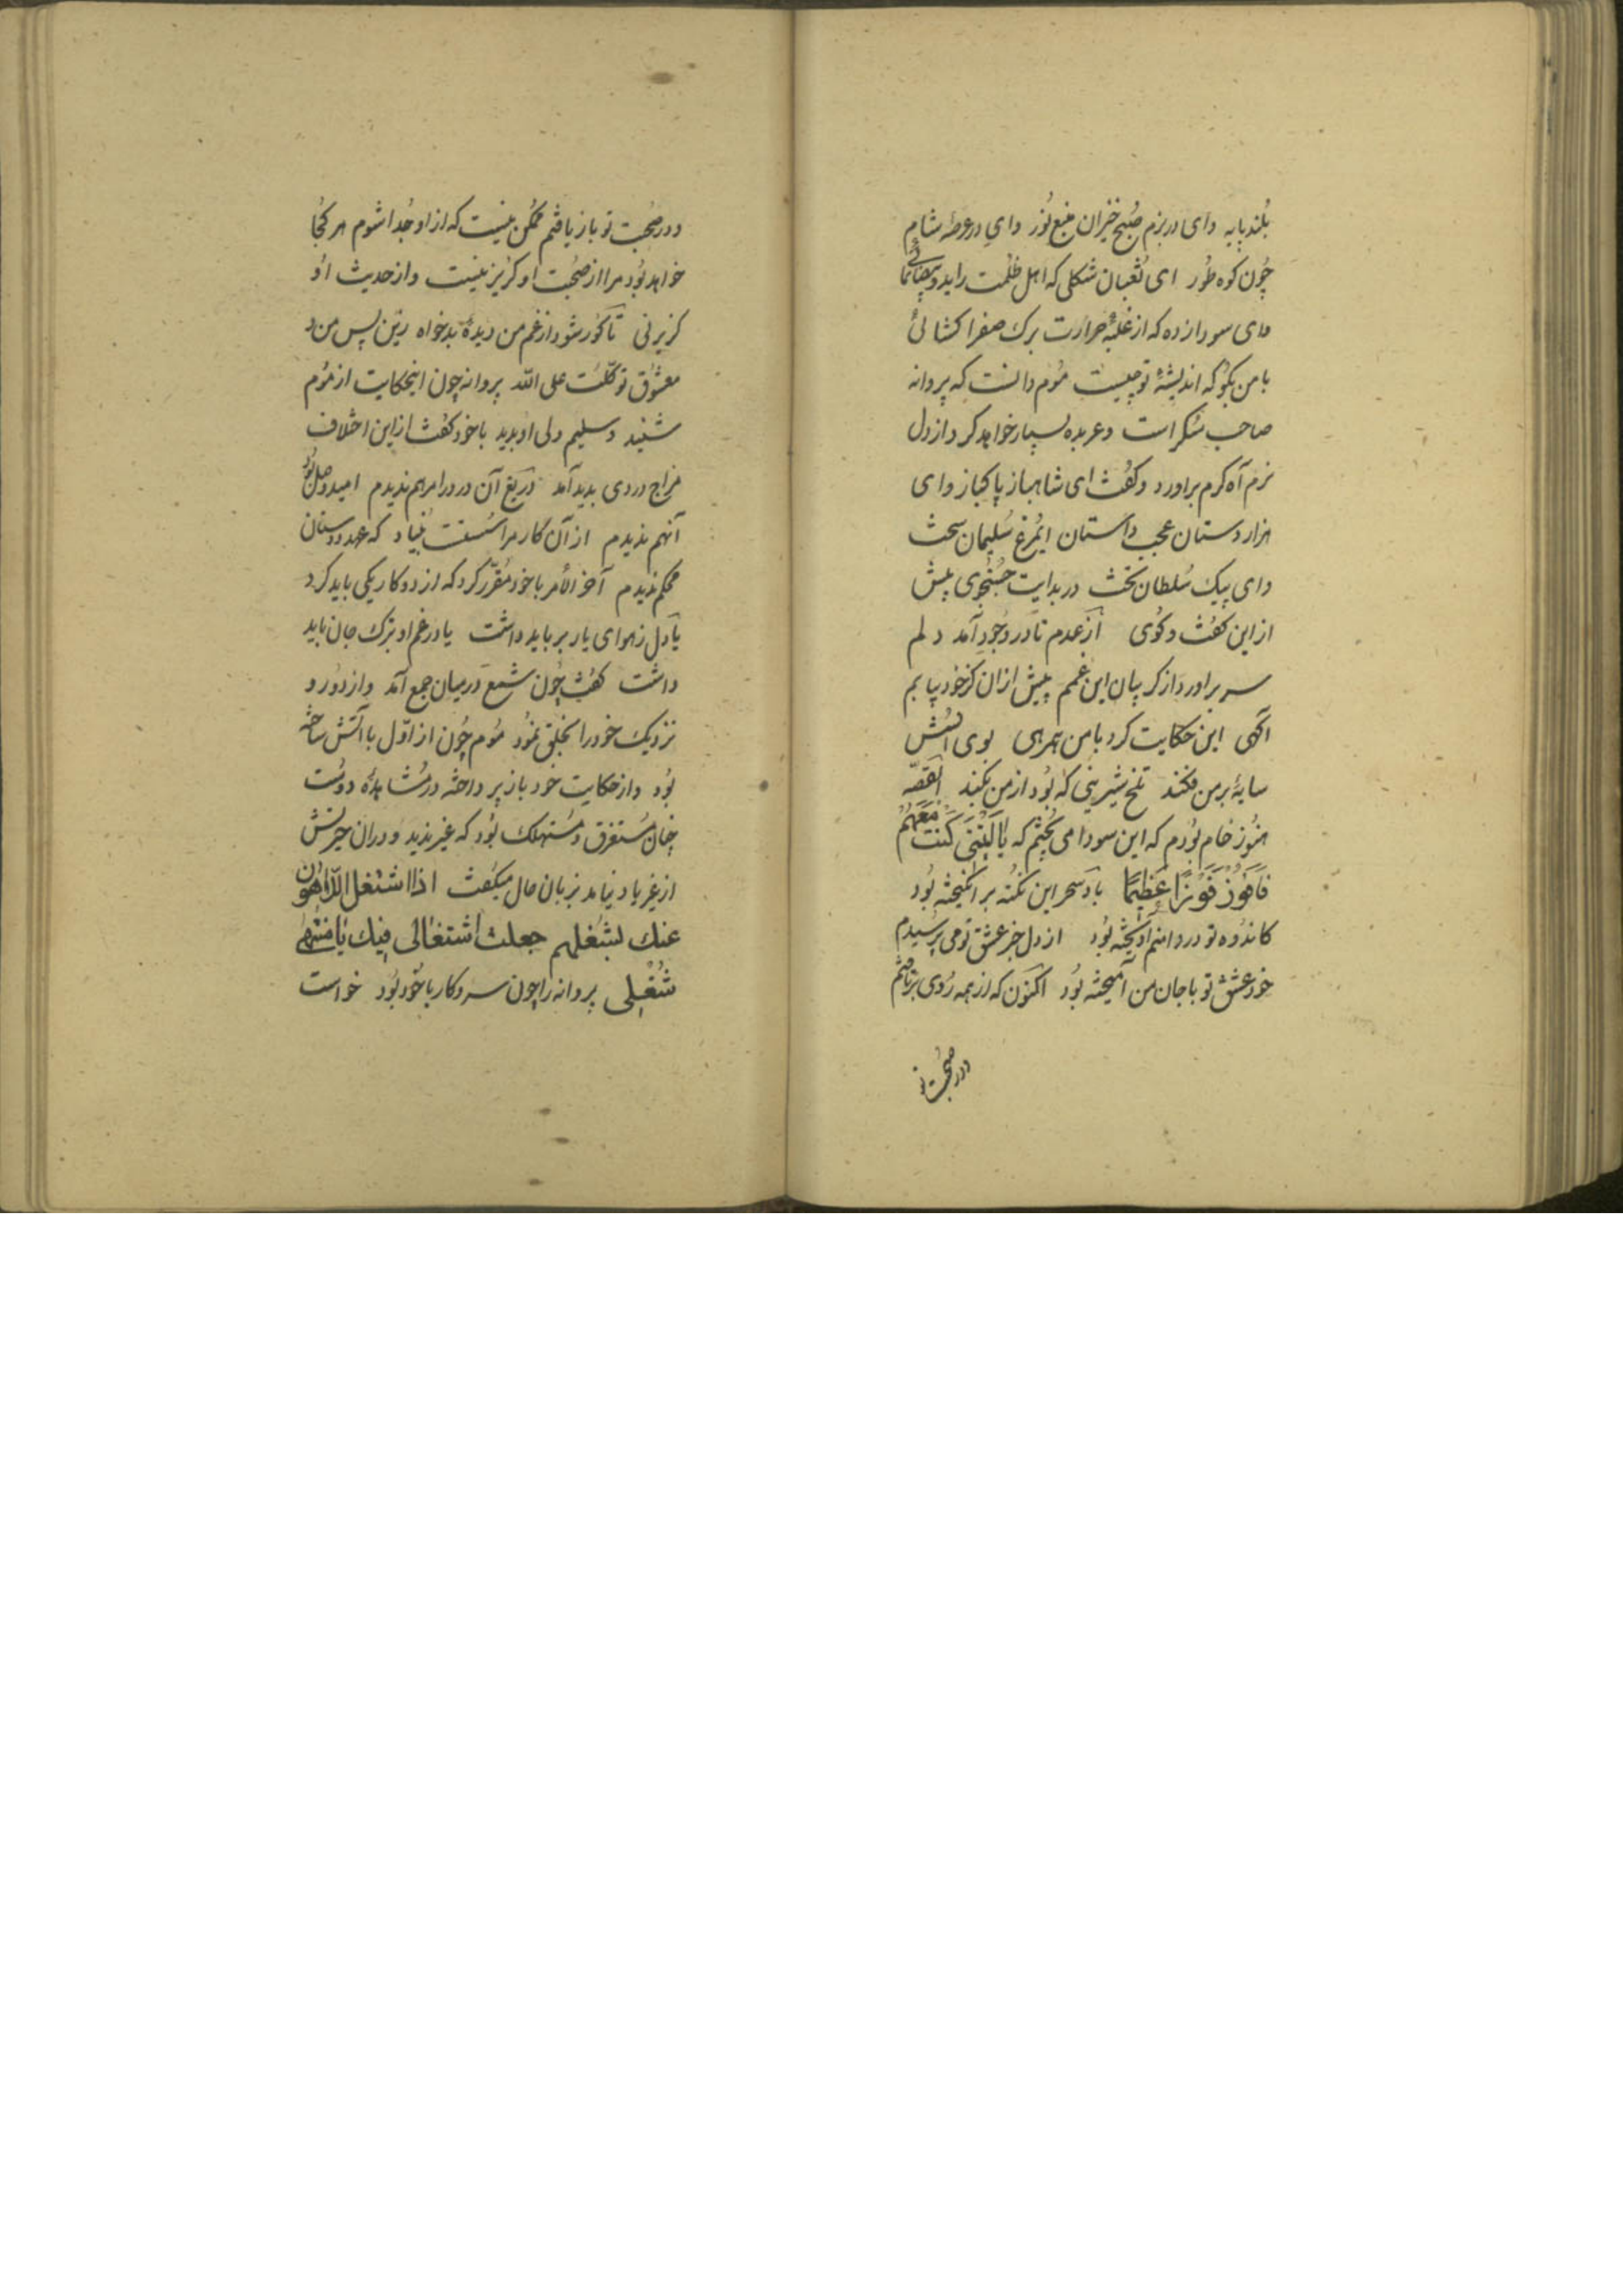 بُلند پایه وای در بزم صُبح خیزان منبع نُور وای در عرصهٔ شام
چُون کوه طُور ای ثُعبان شکلی که اهل ظلمت را ید و بیضا نمائی
وای سودا زده که از غلبهٔ حرارت برک صفرا کشائی
با من بکو که اندیشهٔ تو چیست مُوم دانست که پروانه
صاحب سُکر است و عربده بسیار خواهد کرد از دل
نرم آه کرم براورد و کفت ای شاهباز پاکباز وای
هزار دستان عجب داستان ایمُرغ سُلیمان سخت
وای پیک سُلطان تخت در بدایت جُستُجوی پیش
از این کفت و کوی از عدم تا در وجُود آمد دلم
سر براورد از کریبان این غمم پیش ازان کز خود یابم
آکهی این حکایت کرد با من همرهی بوی آتش
سایهٔ بر من فکند تلخ شیرینی که بُود از من بکند القصّه
هنُوز خام بُودم که این سودا می پختم که یٰا لَیْتَنی کُنْتُ مَعَهُمْ
فَاَفُوزَ فَوْزًا عَظیمًا باد سحر این نکته بر انکیخته بُود
کاندُوه تو در دامنم آویخته بُود از دل خبر عشق تو می پرسیدم
خود عشق تو با جان من آمیخته بُود اکنون که از همه رُوی برتافتم
در صُحبت تو
و در صُحبت تو باز یافتم ممکن نیست که از او جُدا شوم هر کجا
خواهد بُود مرا از صُحبت او کزیز نیست و از حدیث اُو
کزیر نی تا کور شود از غم من دیدهٔ بدخواه زین پس من و
معشُوق توکلّت علی اللّه پروانه چون اینحکایت از مُوم
شنید و سلیم دلی او بدید با خود کفت از این اختلاف
مزاج دردی بدید آمد دریغ آن درد را مرهم ندیدم امید وصل بُود
آنهم ندیدم از آن کار مرا سُست بُنیاد که عهد دوستان
محکم ندیدم آخر الأمر با خود مُقرّر کرد که از دو کار یکی باید کرد
یا دل ز هوای یار بر باید داشت یا در غم او ترک جان باید
داشت کفت چُون شمع در میان جمع آمد و از دُور و
نزدیک خود را بخلق نمُود مُوم چُون از اوّل با آتش ساخته
بُود و از حکایت خود باز پرداخته در مُشاهدهٔ دوست
چنان مُستغرق و مُستهلک بُود که غیر ندید و دران حیرتش
از غیر یاد نیامد بزبان حال میکفت اذا اشتغل اللّاهون
عنك بشغلهم جعلت اشتغالی فیك یٰا منتهیٰ
شُغْلی پروانه را چون سر و کار با خُود بُود خواست